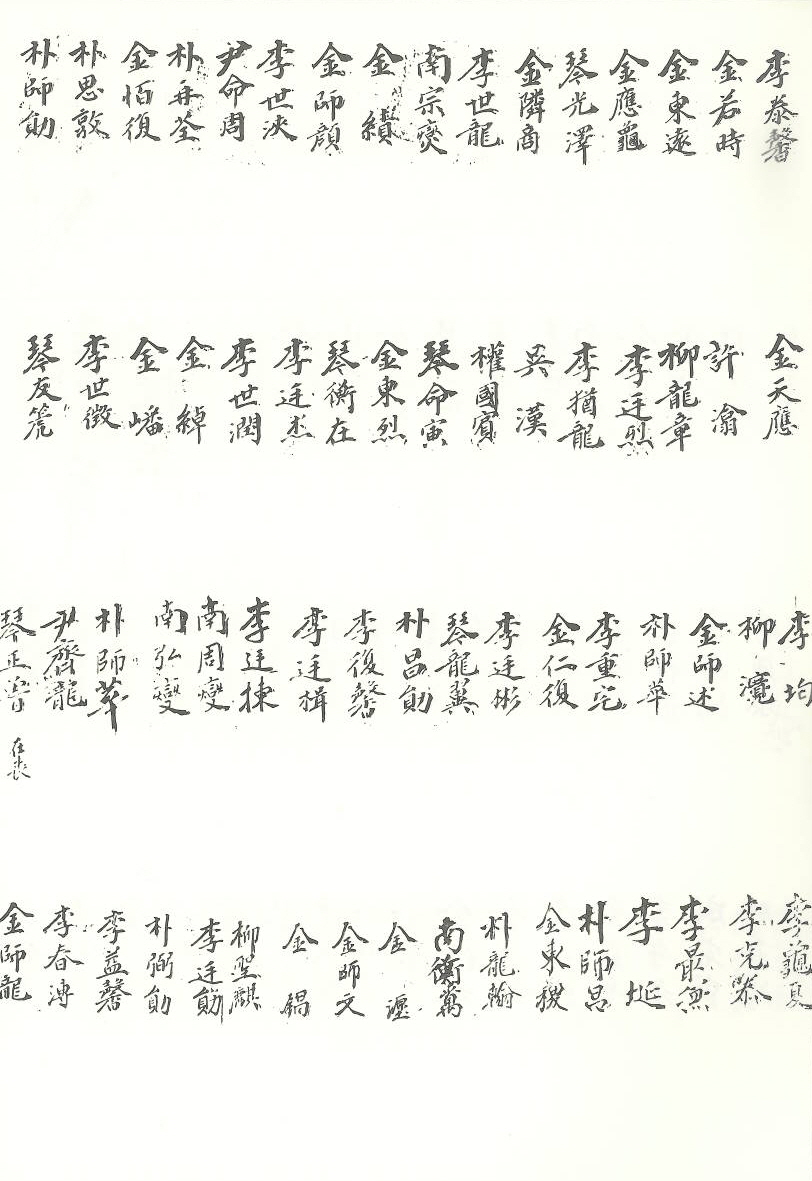 李泰馨
金若時
金東遠
金應龜
琴光澤
金隣商
李世龍
南宗燮
金績
金師顔
李世浹
尹命周
朴再荃
金恒復
朴思敦
朴師勛
金天應
許滃
柳龍章
李廷烈
李猶龍
吳漢
權國賓
琴命寅
金東烈
琴衡在
李廷杰
李世潤
金綽
金嶓
李世徵
琴友箎
李均
柳
金師述
朴師華
李重宅
金仁復
李廷彬
琴龍翼
朴昌勛
李復馨
李廷楫
李廷揀
南周燮
南弘燮
朴師莘
尹齊龍
琴正曾 在喪
李龜夏
李克
李最然
李埏
朴師呂
金東稷
朴龍翰
南衡萬
金
金師文
金鍋
柳聖麒
李廷勛
朴弼勛
李益馨
李春溥
金師龍